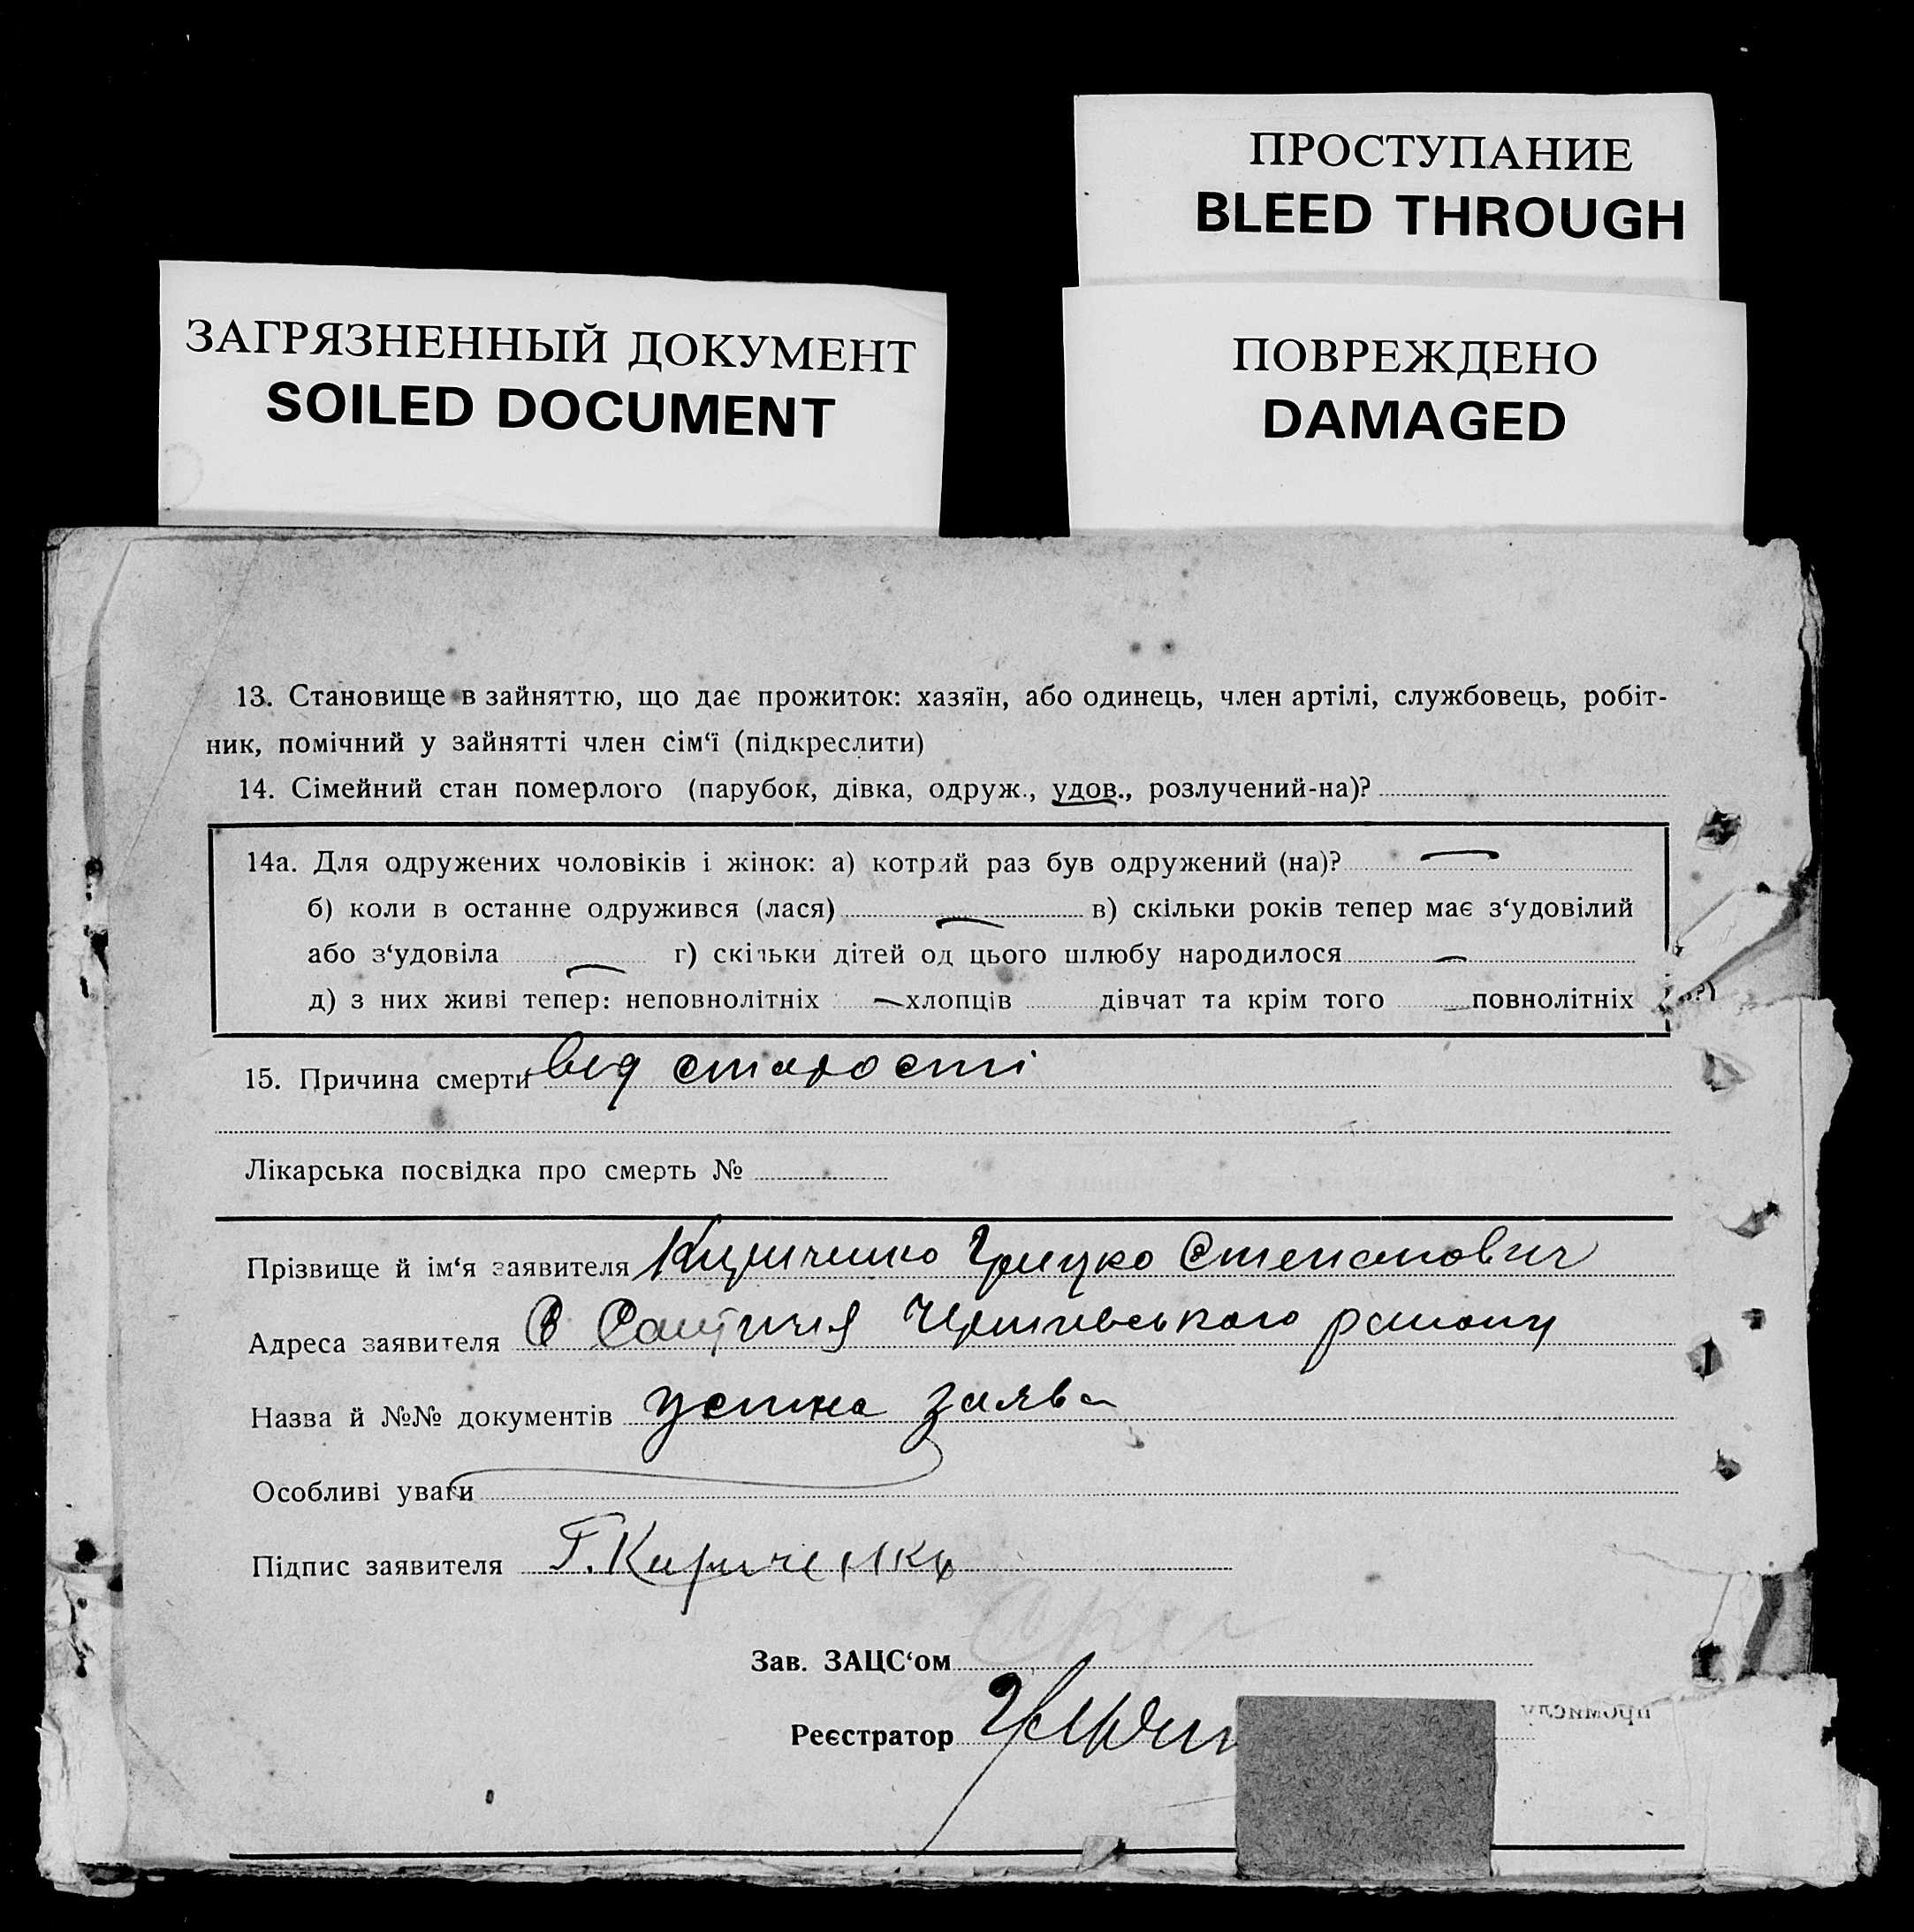 ПРОСТУПАНИЕ
BLEED THROUGH
ЗАГРЯЗНЕННЫЙ ДОКУМЕНТ
SOILED DOCUMENT
ПОВРЕЖДЕНО
DAMAGED
13. Становище в зайняттю, що дає прожиток: хазяїн, або одинець, член артілі, службовець, робіт-
ник, помічний у зайнятті член сім‘ї (підкреслити)
14. Сімейний стан померлого (парубок, дівка, одруж., удов., розлучений-на)?
14а. Для одружених чоловіків і жінок: а) котрий раз був одружений (на)? —
б) коли в останне одружився (лася) — в) скільки років тепер має з‘удовілий
або з‘удовіла — г) скільки дітей од цього шлюбу народилося —
д) з них живі тепер: неповнолітніх — хлопців дівчат та крім того повнолітніх
15. Причина смерти від старости
Лікарська посвідка про смерть №
Прізвище й ім‘я заявителя Кириченко Грицко Степанович
Адреса заявителя С району
Назва й №№ документів устна заява
Особливі уваги
Підпис заявителя Г. Кириченко
Зав. ЗАЦС‘ом
Реєстратор
промислу